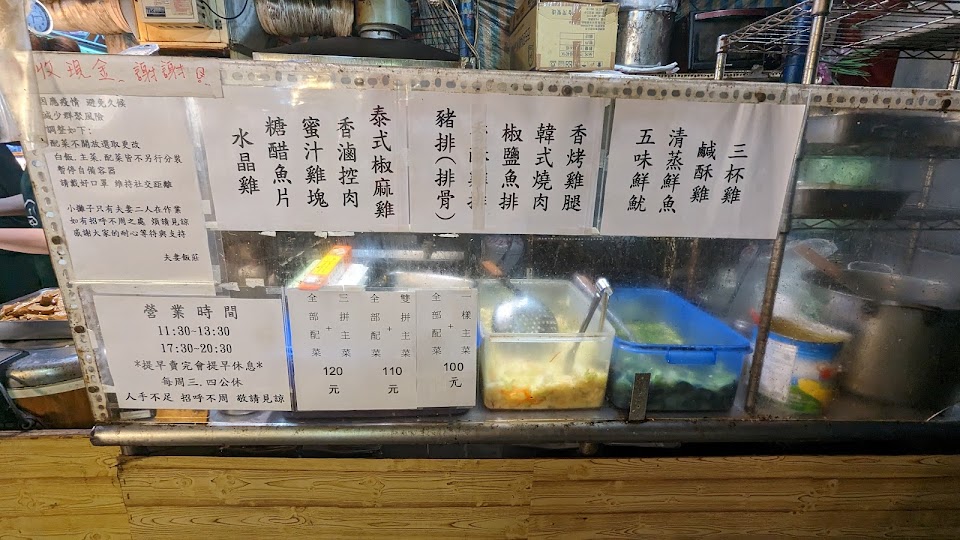 收現金、謝謝
因應疫情 避免久候
減少群聚風險
調整如下:
配菜不開放選取更改
白飯.主菜.配菜皆不另行分裝
暫停自備容器
請戴好口罩 維持社交距離
小獅子只有夫妻二人在作業
如有招呼不周之處 須請見諒
感謝大家的耐心等待與支持
夫妻飯莊
三杯雞
鹹酥雞
清蒸鮮魚
五味鮮魷
香烤雞腿
韓式燒肉
椒鹽魚排
豬排(排骨)
泰式椒麻雞
香滷控肉
蜜汁雞塊
糖醋魚片
水晶雞
營業時間
11:30-13:30
17:30-20:30
*提早賣完會提早休息*
每周三.四公休
人手不足 招呼不周 敬請見諒
一樣主菜+全部配菜
100元
雙拼主菜+全部配菜
110元
三拼主菜+全部配菜
120元